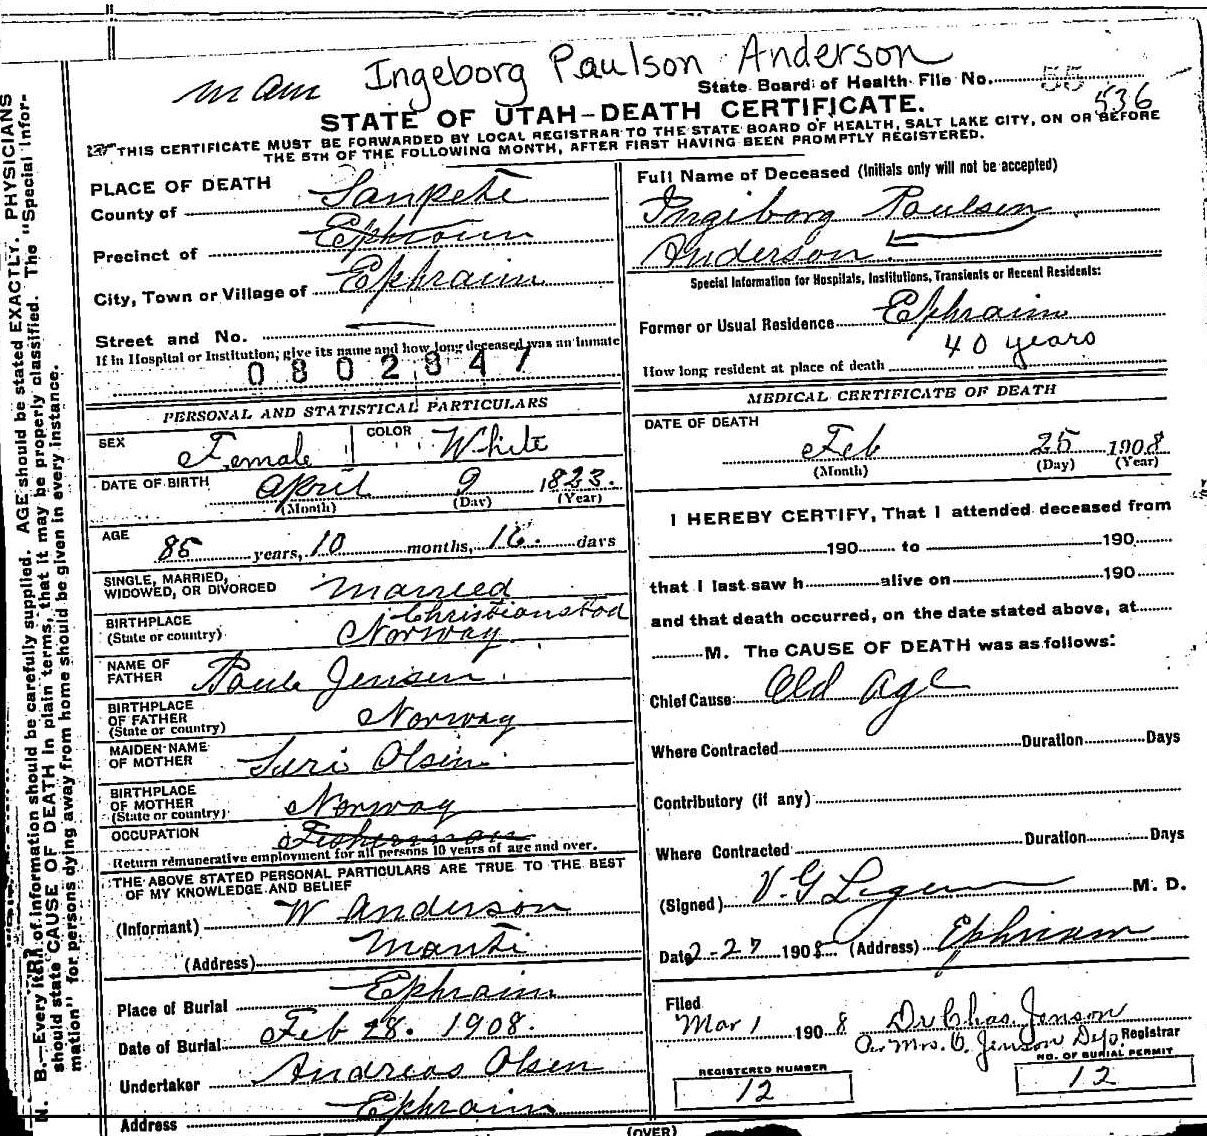 Ingeborg Paulson Anderson
State Board of Health File No. 55
536
STATE OF UTAH-DEATH CERTIFICATE.
THIS CERTIFICATE MUST BE FORWARDED BY LOCAL REGISTRAR TO THE STATE BOARD OF HEALTH, SALT LAKE CITY, ON OR BEFORE
THE 5TH OF THE FOLLOWING MONTH, AFTER FIRST HAVING BEEN PROMPTLY REGISTERED.
PLACE OF DEATH
County of Sanpete
Precinct of Ephraim
City, Town or Village of Ephraim
Street and No.
If in Hospital or Institution, give its name and how long deceased was an inmate
0802847
PERSONAL AND STATISTICAL PARTICULARS
SEX Female COLOR White
DATE OF BIRTH April 9 1823.
(Month) (Day) (Year)
AGE 85 years, 10 months, 16. days
SINGLE, MARRIED,
WIDOWED, OR DIVORCED Married
BIRTHPLACE Christianstad
(State or country) Norway
NAME OF
FATHER Jensen
BIRTHPLACE
OF FATHER Norway
(State or country)
MAIDEN NAME
OF MOTHER Olsen
BIRTHPLACE
OF MOTHER Norway
(State or country)
OCCUPATION Fisherman
Return remunerative employment for all persons 10 years of age and over.
THE ABOVE STATED PERSONAL PARTICULARS ARE TRUE TO THE BEST
OF MY KNOWLEDGE AND BELIEF
(Informant) W Anderson
(Address) Manti
Place of Burial Ephraim
Date of Burial Feb 28. 1908.
Undertaker Andreas Olsen
Address Ephraim
Full Name of Deceased (Initials only will not be accepted)
Ingiborg Paulsen
Anderson
Special Information for Hospitals, Institutions, Transients or Recent Residents:
Former or Usual Residence Ephraim
40 years
How long resident at place of death
MEDICAL CERTIFICATE OF DEATH
DATE OF DEATH
Feb 25 1908
(Month) (Day) (Year)
I HEREBY CERTIFY, That I attended deceased from
190 to 190
that I last saw h alive on 190
and that death occurred, on the date stated above, at
M. The CAUSE OF DEATH was as follows:
Chief Cause Old age
Where Contracted Duration Days
Contributory (if any)
Where Contracted Duration Days
(Signed) V. G. M. D.
Date 2-27 1908 (Address) Ephriam
Filed
Mar 1 1908 Dr Chas. Jenson
Mrs. C. Jenson Dep. Registrar
REGISTERED NUMBER
12
NO. OF BURIAL PERMIT
12
(OVER)
N. B.—Every item of information should be carefully supplied. AGE should be stated EXACTLY. PHYSICIANS
should state CAUSE OF DEATH in plain terms, that it may be properly classified. The "Special Infor-
mation" for persons dying away from home should be given in every instance.